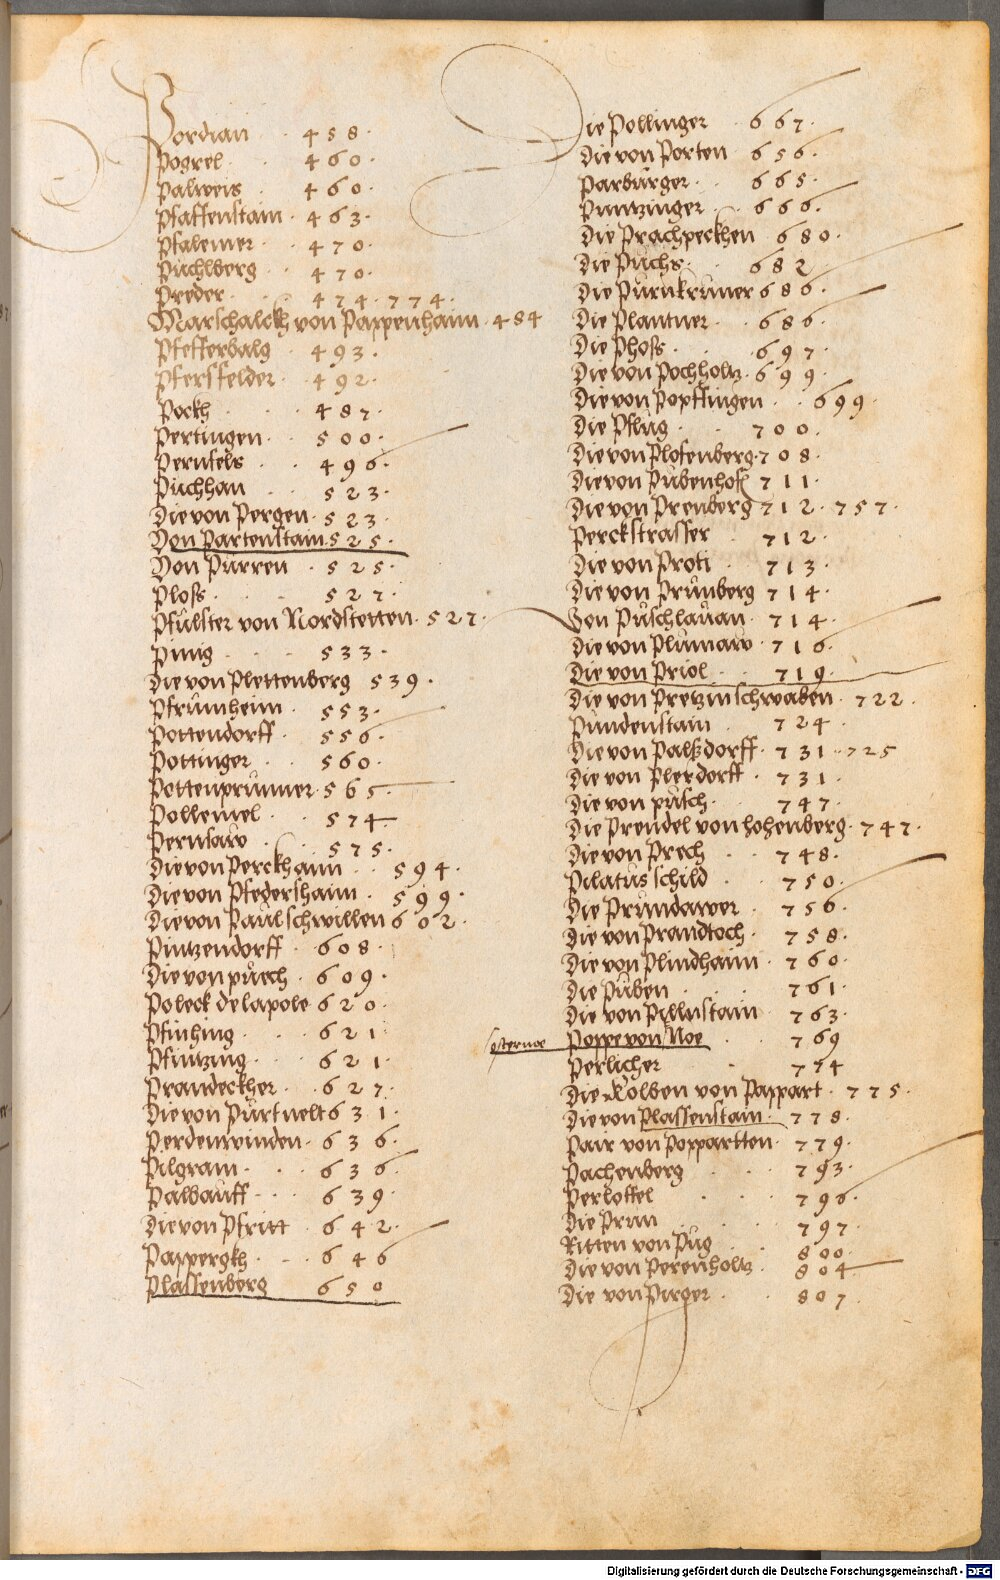 Pordian 458
Pogrel 460
Palweis 460
Pfaffenstain 463
Pfaleiner 470
Puchlberg 470
Preder 474 . 774 .
Marschalckh von Pappenhaim 484
Pfefferbalg 493
Pfersfelder 492
Pockh 487
Pertingen 500
Pernfels 496
Puchhan 523
Die von Pergen 523
Von Partenstain 525
Von Purren 525
Ploss 527
Pfulster von Nordstetten 527
Pinig 533
Die von Plettenberg 539
Pfrumheim 553
Pottendorff 556
Pottinger 560
Pottenprunner 565
Pollemel 574
Pernsaw 575
Die von Perckhaim 594
Die von Pfedershaim 599
Die von Paulschwillen 602
Pintzendorff 608
Die von puech 609
Poleck de lapole 620
Pfinhing 621
Pfintzing 621
Prandeckher 627
Die von Purtnelt 631
Perdenwinden 636
Pilgram 636
Palbauff 639
Die von Pfritt 642
Pappergkh 646
Plassenberg 650
Die Pollinger 667
Die von Porten 656
Parburger 665
Puntzinger 666
Die Prachpeckhen 680
Die Puchs 682
Die Purnkrumer 686
Die Plantner 686
Die Phoss 697
Die von Pochholtz 699
Die von Popffingen 699
Die Pflug 700
Die von Plofenberg 708
Die von Pubenhofe 711
Die von Prenberg 712 . 757 .
Perckstrasser 712
Die von Proti 713
Die von Prunberg 714
Von Puschlauan 714
Die von Plumaw 716
Die von Priol 719
Die von Pretzin schwaben 722
Pundenstain 724
Die von Palßdorff 731 . 725
Die von Plerdorff 731
Die von pusch 747
Die Prendel von hohenberg 747
Die von Prech 748
Pilatus schild 750
Die Prundawer 756
Die von Prandtoch 758
Die von Plindhaim 760
Die Puben 761
Die von Pillnstain 763
Poppe von Noe 769
Perlicher 774
Die Kolben von Pappart 775
Die von Plassenstain 778
Pair von Poppartten 779
Pachenberg 793
Perloffel 796
Die Prun 797
Ritten von Pug 800
Die von Perenholtz 804
Die von Pirger 807
Digitalisierung gefördert durch die Deutsche Forschungsgemeinschaft - DFG